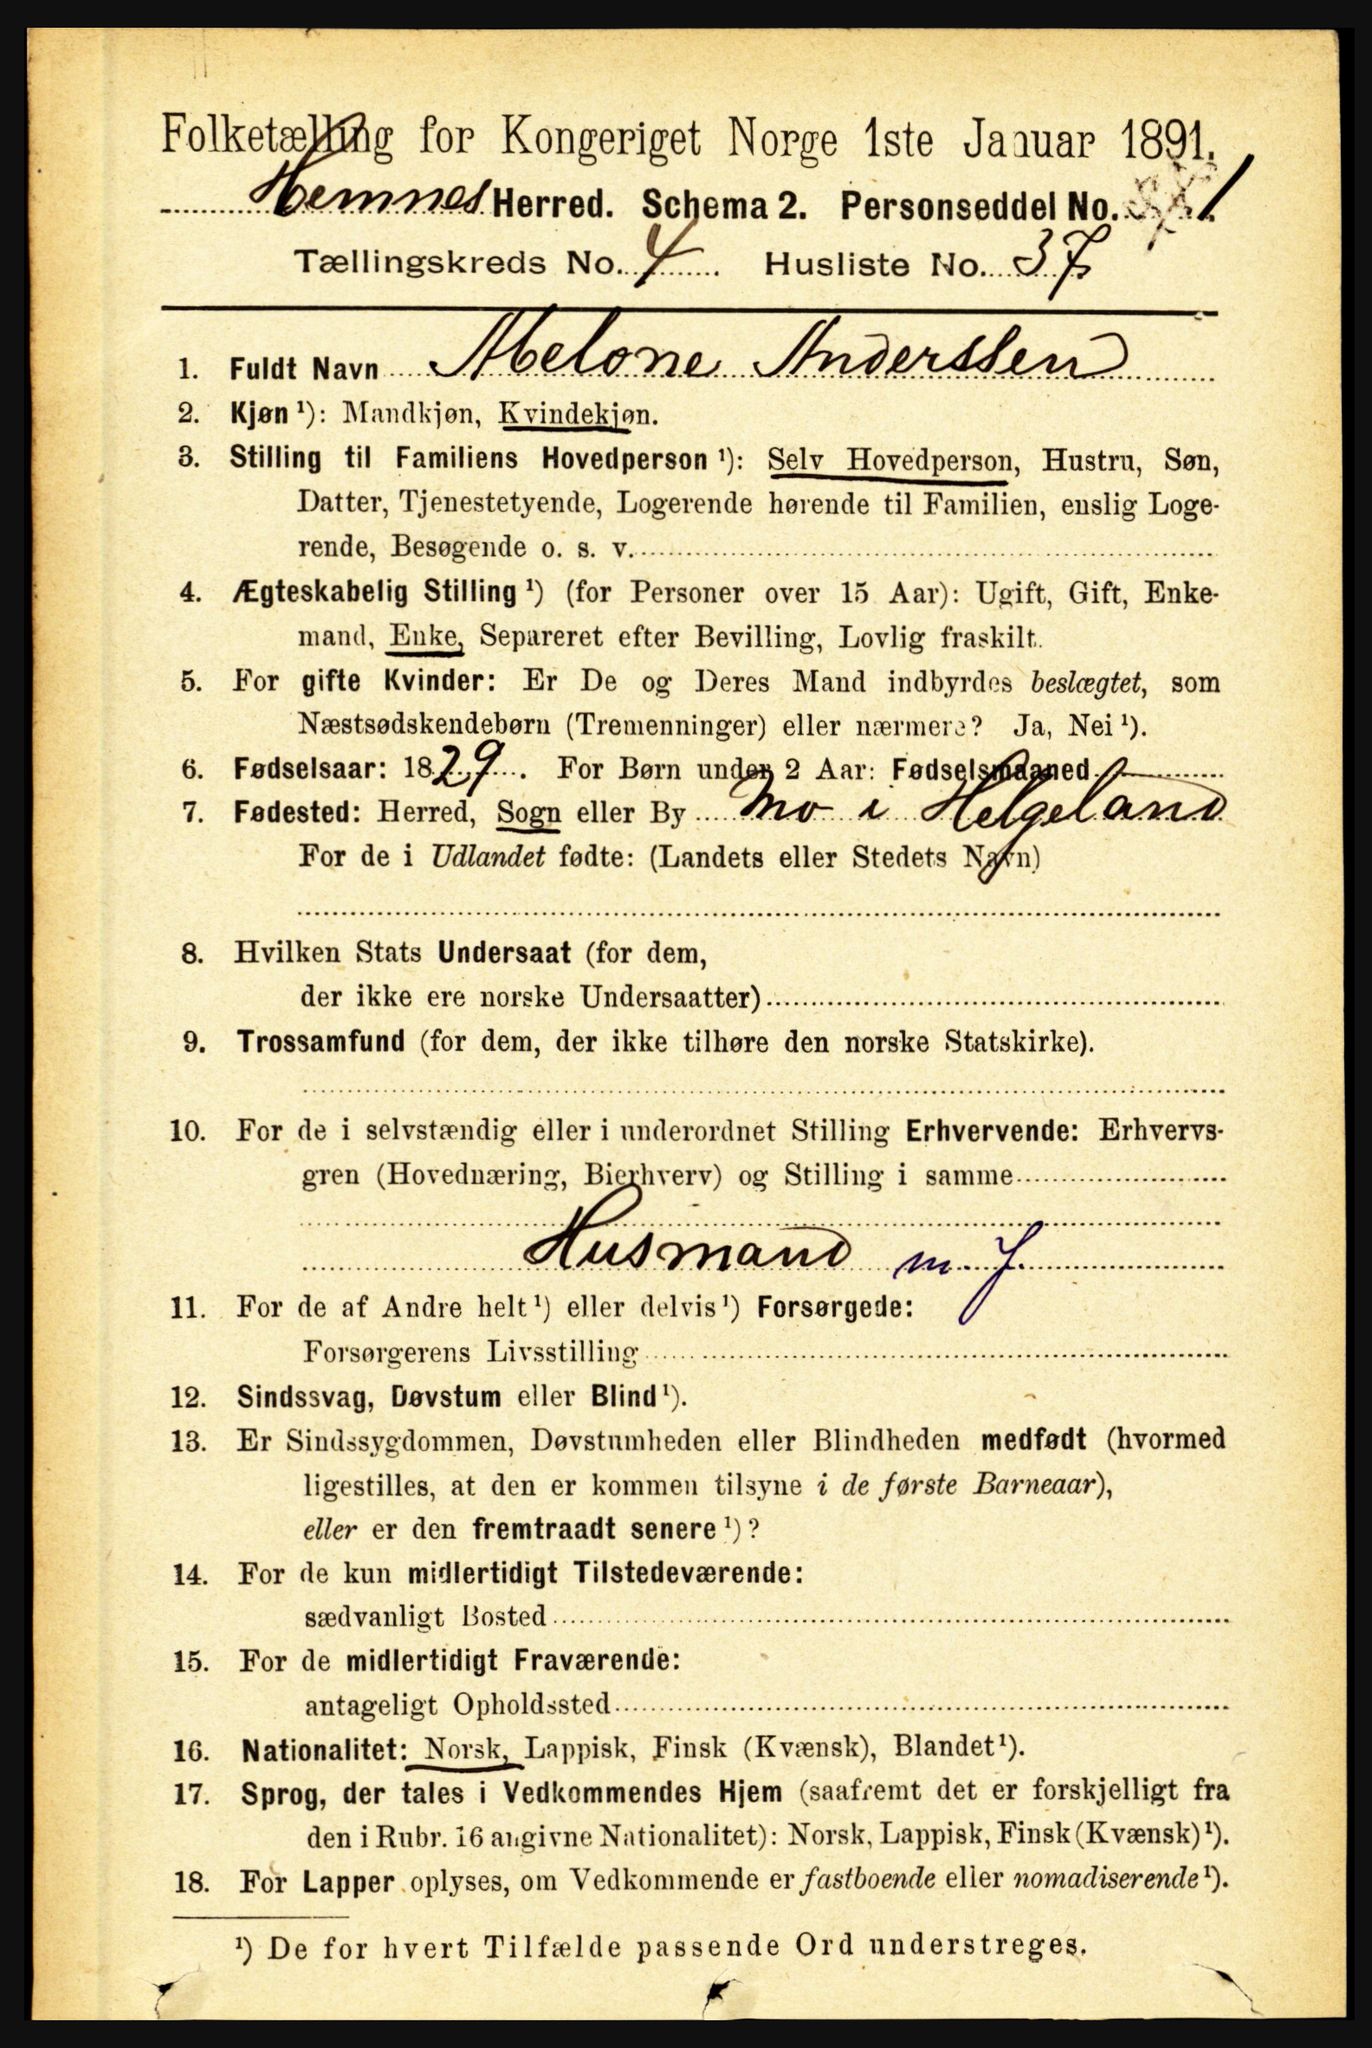 Folketælling for Kongeriget Norge 1ste Januar 1891.
Hemnes Herred. Schema 2. Personseddel No. 1
Tællingskreds No. 4 Husliste No. 37
1. Fuldt Navn Abelone Anderssen
2. Kjøn ¹): Mandkjøn, Kvindekjøn.
3. Stilling til Familiens Hovedperson ¹): Selv Hovedperson, Hustru, Søn,
Datter, Tjenestetyende, Logerende hørende til Familien, enslig Loge-
rende, Besøgende o. s. v.
4. Ægteskabelig Stilling ¹) (for Personer over 15 Aar): Ugift, Gift, Enke-
mand, Enke, Separeret efter Bevilling, Lovlig fraskilt.
5. For gifte Kvinder: Er De og Deres Mand indbyrdes beslægtet, som
Næstsødskendebørn (Tremenninger) eller nærmere? Ja, Nei ¹).
6. Fødselsaar: 1829. For Børn under 2 Aar: Fødselsmaaned
7. Fødested: Herred, Sogn eller By Mo i Helgeland
For de i Udlandet fødte: (Landets eller Stedets Navn)
8. Hvilken Stats Undersaat (for dem,
der ikke ere norske Undersaatter)
9. Trossamfund (for dem, der ikke tilhøre den norske Statskirke).
10. For de i selvstændig eller i underordnet Stilling Erhvervende: Erhvervs-
gren (Hovednæring, Bierhverv) og Stilling i samme
Husmand m. J.
11. For de af Andre helt ¹) eller delvis ¹) Forsørgede:
Forsørgerens Livsstilling
12. Sindssvag, Døvstum eller Blind ¹).
13. Er Sindssygdommen, Døvstumheden eller Blindheden medfødt (hvormed
ligestilles, at den er kommen tilsyne i de første Barneaar),
eller er den fremtraadt senere ¹)?
14. For de kun midlertidigt Tilstedeværende:
sædvanligt Bosted
15. For de midlertidigt Fraværende:
antageligt Opholdssted
16. Nationalitet: Norsk, Lappisk, Finsk (Kvænsk), Blandet ¹).
17. Sprog, der tales i Vedkommendes Hjem (saafremt det er forskjelligt fra
den i Rubr. 16 angivne Nationalitet): Norsk, Lappisk, Finsk (Kvænsk) ¹).
18. For Lapper oplyses, om Vedkommende er fastboende eller nomadiserende ¹).
¹) De for hvert Tilfælde passende Ord understreges.